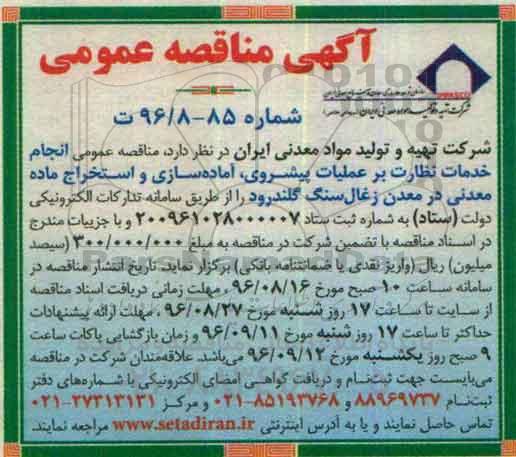 آگهی مناقصه عمومی
شرکت تهیه و تولید مواد معدنی ایران
شماره ۸۵-۹۶/۸ ت
شرکت تهیه و تولید مواد معدنی ایران در نظر دارد، مناقصه عمومی انجام
خدمات نظارت بر عملیات پیشروی، آماده‌سازی و استخراج ماده
معدنی در معدن زغال‌سنگ گلندرود را از طریق سامانه تدارکات الکترونیکی
دولت (ستاد) به شماره ثبت ستاد ۲۰۰۹۶۱۰۲۸۰۰۰۰۰۷ و با جزییات مندرج
در اسناد مناقصه با تضمین شرکت در مناقصه به مبلغ ۳۰۰/۰۰۰/۰۰۰ (سیصد
میلیون) ریال (واریز نقدی یا ضمانتنامه بانکی) برگزار نماید. تاریخ انتشار مناقصه در
سامانه ساعت ۱۰ صبح مورخ ۹۶/۰۸/۱۶، مهلت زمانی دریافت اسناد مناقصه
از سایت تا ساعت ۱۷ روز شنبه مورخ ۹۶/۰۸/۲۷، مهلت ارائه پیشنهادات
حداکثر تا ساعت ۱۷ روز شنبه مورخ ۹۶/۰۹/۱۱ و زمان بازگشایی پاکات ساعت
۹ صبح روز یکشنبه مورخ ۹۶/۰۹/۱۲ می‌باشد. علاقه‌مندان شرکت در مناقصه
می‌بایست جهت ثبت‌نام و دریافت گواهی امضای الکترونیکی با شماره‌های دفتر
ثبت‌نام ۸۸۹۶۹۷۳۷ و ۸۵۱۹۳۷۶۸-۰۲۱ و مرکز ۲۷۳۱۳۱۳۱-۰۲۱
تماس حاصل نمایند و یا به آدرس اینترنتی www.setadiran.ir مراجعه نمایند.